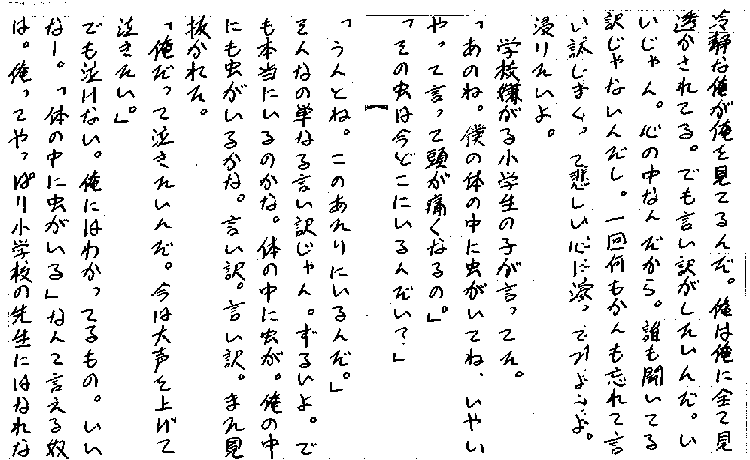 冷静な俺が俺を見てるんだ。俺は俺に全て見
透かされてる。でも言い訳がしたいんだ。い
いじゃん。心の中なんだから。誰も聞いてる
訳じゃないんだし。一回何もかんも忘れて言
い訳しまくって悲しい心に浸って
浸りたいよ。
学校嫌がる小学生の子が言ってた。
「あのね。僕の体の中に虫がいてね、いやい
やって言って頭が痛くなるの」。
「その虫は今どこにいるんだい？」
「うんとね。このあたりにいるんだ。」
そんなの単なる言い訳じゃん。ずるいよ。で
も本当にいるのかな。体の中に虫が。俺の中
にも虫がいるかな。言い訳。言い訳。また見
抜かれた。
「俺だって泣きたいんだ。今は大声を上げて
泣きたい。」
でも泣けない。俺にはわかってるもの。いい
なー。「体の中に虫がいる」なんて言える奴
は。俺ってやっぱり小学校の先生にはなれな